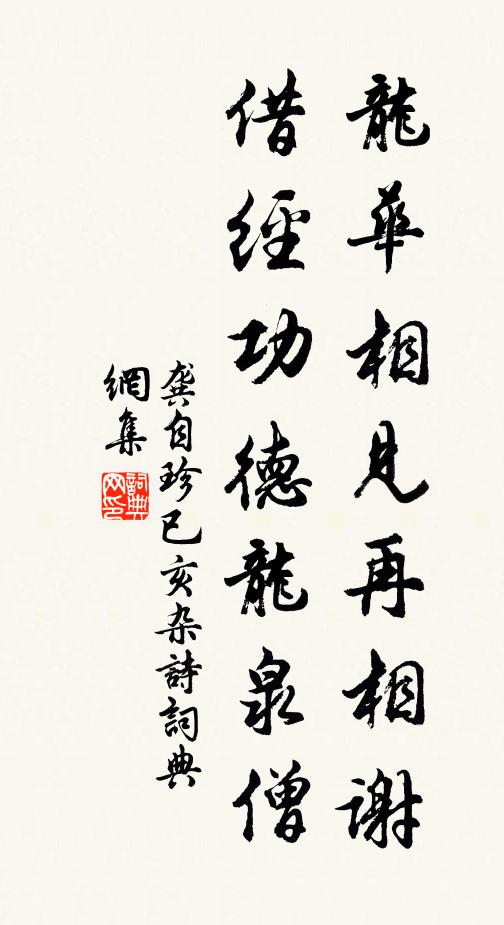 龍華相見再相謝
借經功德龍泉僧
龔自珍己亥杂詩詞典
網集
詞典
网印